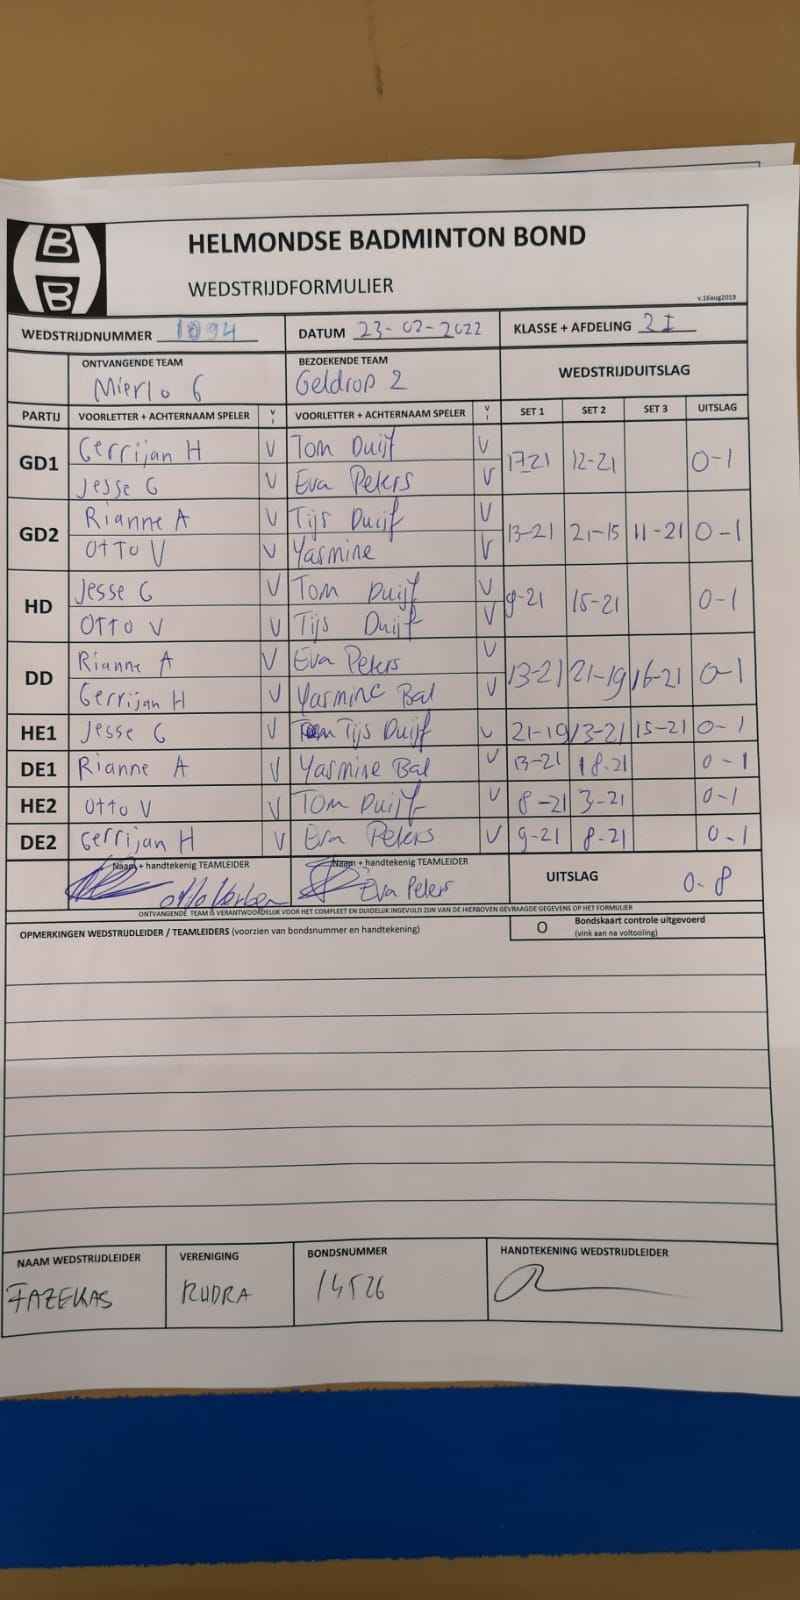 B
B
HELMONDSE BADMINTON BOND
WEDSTRIJDFORMULIER
v.16aug2019
WEDSTRIJDNUMMER 1094 DATUM 23-02-2022 KLASSE + AFDELING 3 I
ONTVANGENDE TEAM BEZOEKENDE TEAM WEDSTRIJDUITSLAG
Mierlo 6 Geldrop 2
PARTIJ VOORLETTER + ACHTERNAAM SPELER V VOORLETTER + ACHTERNAAM SPELER V SET 1 SET 2 SET 3 UITSLAG
GD1 Gerrijan H V Tom Duijf V 17-21 12-21 0-1
Jesse G V Eva Peters V
GD2 Rianne A V Tijs Duijf V 13-21 21-15 11-21 0-1
Otto V V Yasmine V
HD Jesse G V Tom Duijf V 9-21 15-21 0-1
Otto V V Tijs Duijf V
DD Rianne A V Eva Peters V 13-21 21-19 16-21 0-1
Gerrijan H V Yasmine Bal V
HE1 Jesse G V Tijs Duijf V 21-19 13-21 15-21 0-1
DE1 Rianne A V Yasmine Bal V 13-21 18-21 0-1
HE2 Otto V V Tom Duijf V 8-21 3-21 0-1
DE2 Gerrijan H V Eva Peters V 9-21 8-21 0-1
Naam + handtekenig TEAMLEIDER Naam + handtekenig TEAMLEIDER UITSLAG 0-8
Eva Peters
ONTVANGENDE TEAM IS VERANTWOORDELIJK VOOR HET COMPLEET EN DUIDELIJK INGEVULD ZIJN VAN DE HIERBOVEN GEVRAAGDE GEGEVENS OP HET FORMULIER
OPMERKINGEN WEDSTRIJDLEIDER / TEAMLEIDERS (voorzien van bondsnummer en handtekening) O Bondskaart controle uitgevoerd
(vink aan na voltooiing)
NAAM WEDSTRIJDLEIDER VERENIGING BONDSNUMMER HANDTEKENING WEDSTRIJDLEIDER
FAZEKAS RUDRA 14526